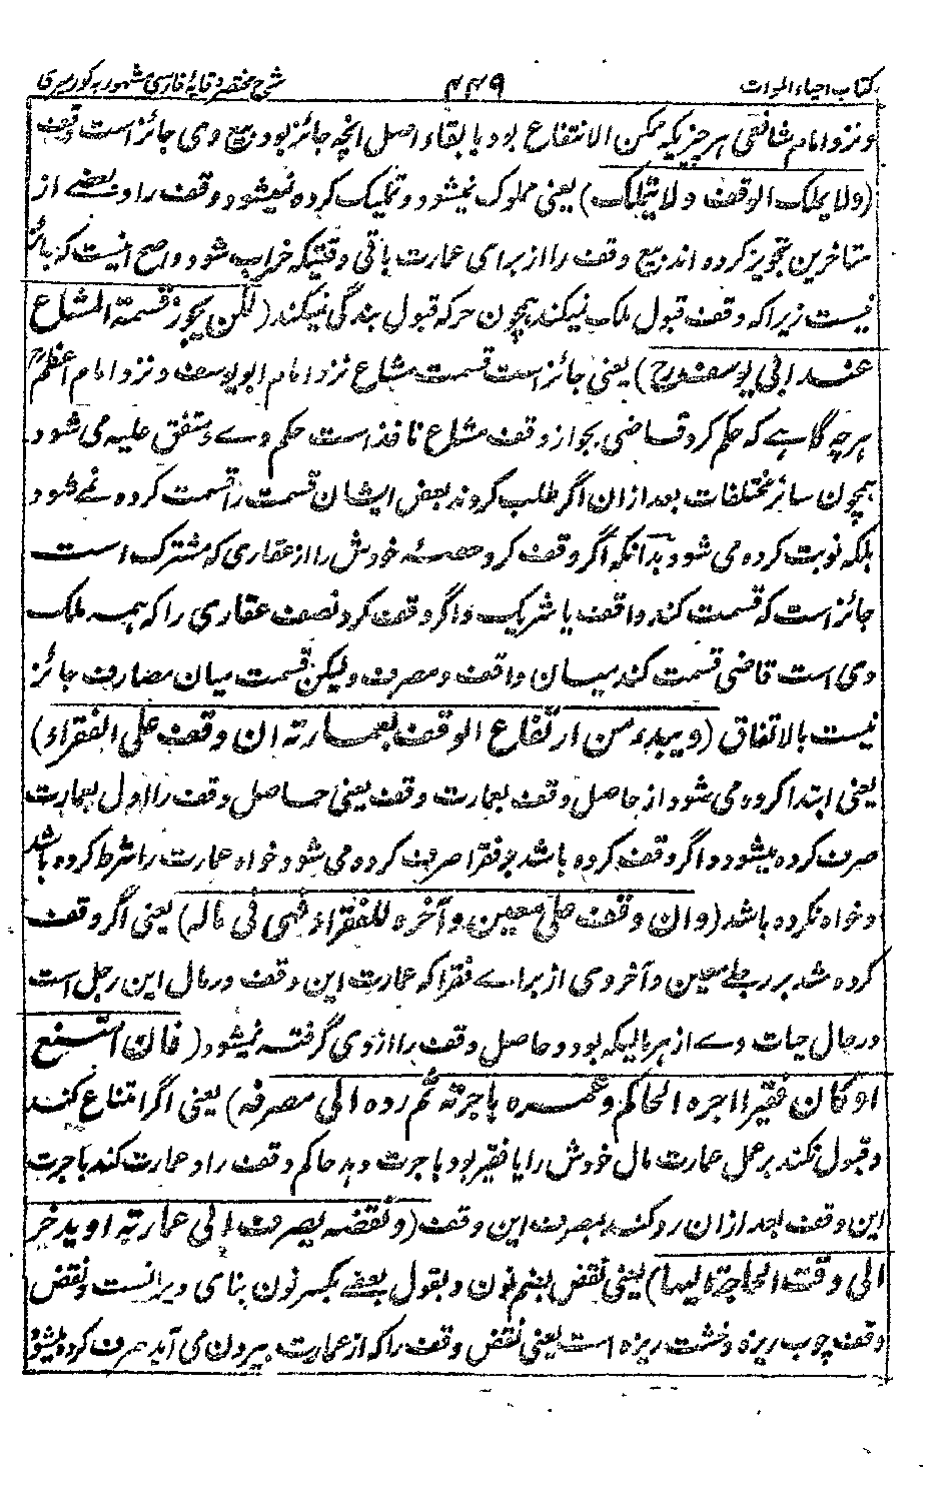 کتاب احیاء الموات ۴۴۹ شرح مختصر وقایۀ فارسی مشهور به کورمیری
ونزد امام شافعی هر چیزیکه ممکن الانتفاع بود با بقاء اصل انچه جائز بود بیع وی جائز است وقف
(ولا یملک الوقف ولا یتملک) یعنی مملوک نمیشود وتملیک کرده نمیشود وقف را وبعضے از
متاخرین تجویز کرده اند بیع وقف را از برای عمارت باقی وقتیکه خراب شود واصح انیست که جائز
نیست زیرا که وقف قبول ملک نمیکند همچون حر که قبول بندگی نمیکند (لکن یجوز قسمة المشاع
عند ابی یوسف رح) یعنی جائز است قسمت مشاع نزد امام ابو یوسف ونزد امام اعظم رح
هر چه گاہے که حکم کرد قاضی بجواز وقف مشاع نافذ است حکم وے ومتفق علیه می شود
همچون سائر مختلفات بعد ازان اگر طلب کردند بعض ایشان قسمت را قسمت کرده نمے شود
بلکه نوبت کرده می شود بدآنکه اگر وقف کرد حصۂ خودش را از عقاری که مشترک است
جائز است که قسمت کند واقف با شریک واگر وقف کرد نصف عقاری را که همه ملک
وی است قاضی قسمت کند میان واقف ومصرف ولیکن قسمت میان مصارف جائز
نیست بالاتفاق (ویبدء من ارتفاع الوقف بعمارته ان وقف علی الفقراء)
یعنی ابتدا کرده می شود از حاصل وقف بعمارت وقف یعنی حاصل وقف را اول بعمارت
صرف کرده میشود واگر وقف کرده باشد بر فقرا صرف کرده می شود خواه عمارت را شرط کرده باشد
وخواه نکرده باشد (وان وقف علی معین وآخره للفقراء فهی فی ماله) یعنی اگر وقف
کرده شد بر رجلے معین وآخر وی از براے فقرا که عمارت این وقف در مال این رجل است
در حال حیات وے از هر مالیکه بود وحاصل وقف را ازوی گرفته نمیشود (فان امتنع
او کان فقیرا اجره الحاکم وعمره باجرته ثم رده الی مصرفه) یعنی اگر امتناع کند
وقبول نکند بر عمل عمارت مال خودش را یا فقیر بود باجرت دهد حاکم وقف را وعمارت کند باجرت
این وقف بعد ازان رد کند بمصرف این وقف (ونقضه یصرف الی عمارته او یدخر
الی وقت الحاجة الیها) یعنی نقض بضم نون وبقول بعضے بکسر نون بنای ویرانست ونقض
وقف چوب ریزه وخشت ریزه است یعنی نقض وقف را که از عمارت بیرون می آید صرف کرده میشود